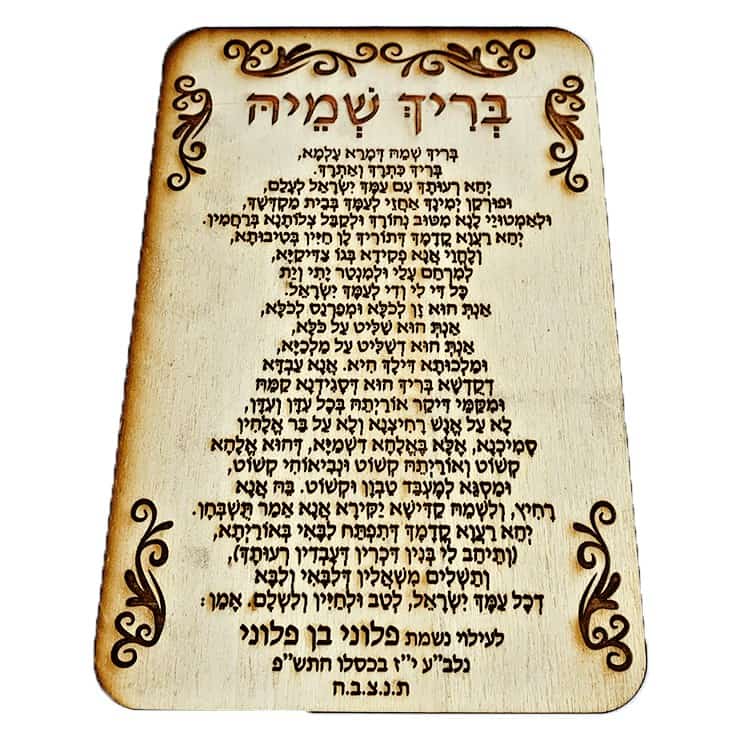 בְּרִיךְ שְׁמֵיהּ
בְּרִיךְ שְׁמֵהּ דְּמָרֵא עָלְמָא,
בְּרִיךְ כִּתְרָךְ וְאַתְרָךְ.
יְהֵא רְעוּתָךְ עִם עַמָּךְ יִשְׂרָאֵל לְעָלַם,
וּפוּרְקַן יְמִינָךְ אַחֲזֵי לְעַמָּךְ בְּבֵית מִקְדְּשָׁךְ,
וּלְאַמְטוּיֵי לָנָא מִטּוּב נְהוֹרָךְ וּלְקַבֵּל צְלוֹתָנָא בְּרַחֲמִין.
יְהֵא רַעֲוָא קֳדָמָךְ דְּתוֹרִיךְ לָן חַיִּין בְּטִיבוּתָא,
וְלֶהֱוֵי אֲנָא פְקִידָא בְּגוֹ צַדִּיקַיָּא,
לְמִרְחַם עֲלַי וּלְמִנְטַר יָתִי וְיָת
כָּל דִּי לִי וְדִי לְעַמָּךְ יִשְׂרָאֵל.
אַנְתְּ הוּא זָן לְכֹלָּא וּמְפַרְנֵס לְכֹלָּא,
אַנְתְּ הוּא שַׁלִּיט עַל כֹּלָּא,
אַנְתְּ הוּא דְשַׁלִּיט עַל מַלְכַיָּא,
וּמַלְכוּתָא דִּילָךְ הִיא. אֲנָא עַבְדָּא
דְקֻדְשָׁא בְּרִיךְ הוּא דְּסָגִידְנָא קַמֵּהּ
וּמִקַּמֵּי דִּיקַר אוֹרַיְתֵהּ בְּכָל עִדָּן וְעִדָּן,
לָא עַל אֱנָשׁ רָחִיצְנָא וְלָא עַל בַּר אֱלָהִין
סָמִיכְנָא, אֶלָּא בֶּאֱלָהָא דִשְׁמַיָּא, דְּהוּא אֱלָהָא
קְשׁוֹט וְאוֹרַיְתֵהּ קְשׁוֹט וּנְבִיאוֹהִי קְשׁוֹט,
וּמַסְגֵּא לְמֶעְבַּד טָבְוָן וּקְשׁוֹט. בֵּהּ אֲנָא
רָחִיץ, וְלִשְׁמֵהּ קַדִּישָׁא יַקִּירָא אֲנָא אֵמַר תֻּשְׁבְּחָן.
יְהֵא רַעֲוָא קֳדָמָךְ דְּתִפְתַּח לִבָּאִי בְּאוֹרַיְתָא,
(וְתֵיהַב לִי בְּנִין דִּכְרִין דְּעָבְדִין רְעוּתָךְ),
וְתַשְׁלִים מִשְׁאֲלִין דְּלִבָּאִי וְלִבָּא
דְכָל עַמָּךְ יִשְׂרָאֵל, לְטַב וּלְחַיִּין וְלִשְׁלָם. אָמֵן :
לעילוי נשמת פלוני בן פלוני
נלב"ע י"ז בכסלו התש"פ
ת.נ.צ.ב.ה